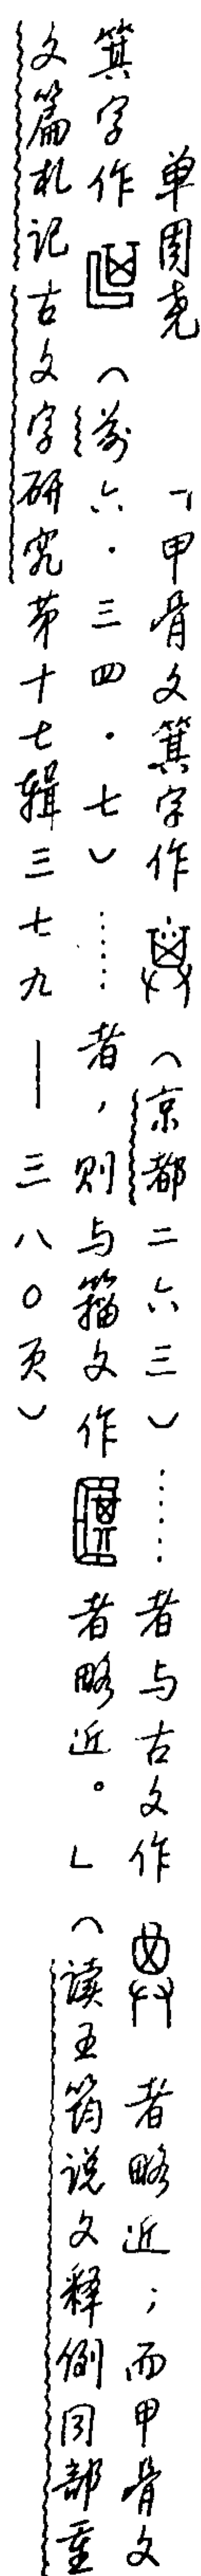 单周尧　「甲骨文箕字作（京都二六三）……者与古文作者略近；而甲骨文
箕字作（前六·三四·七）……者，则与籀文作者略近。」（读王筠说文释例同部重
文篇札记古文字研究第十七辑三七九—三八〇页）